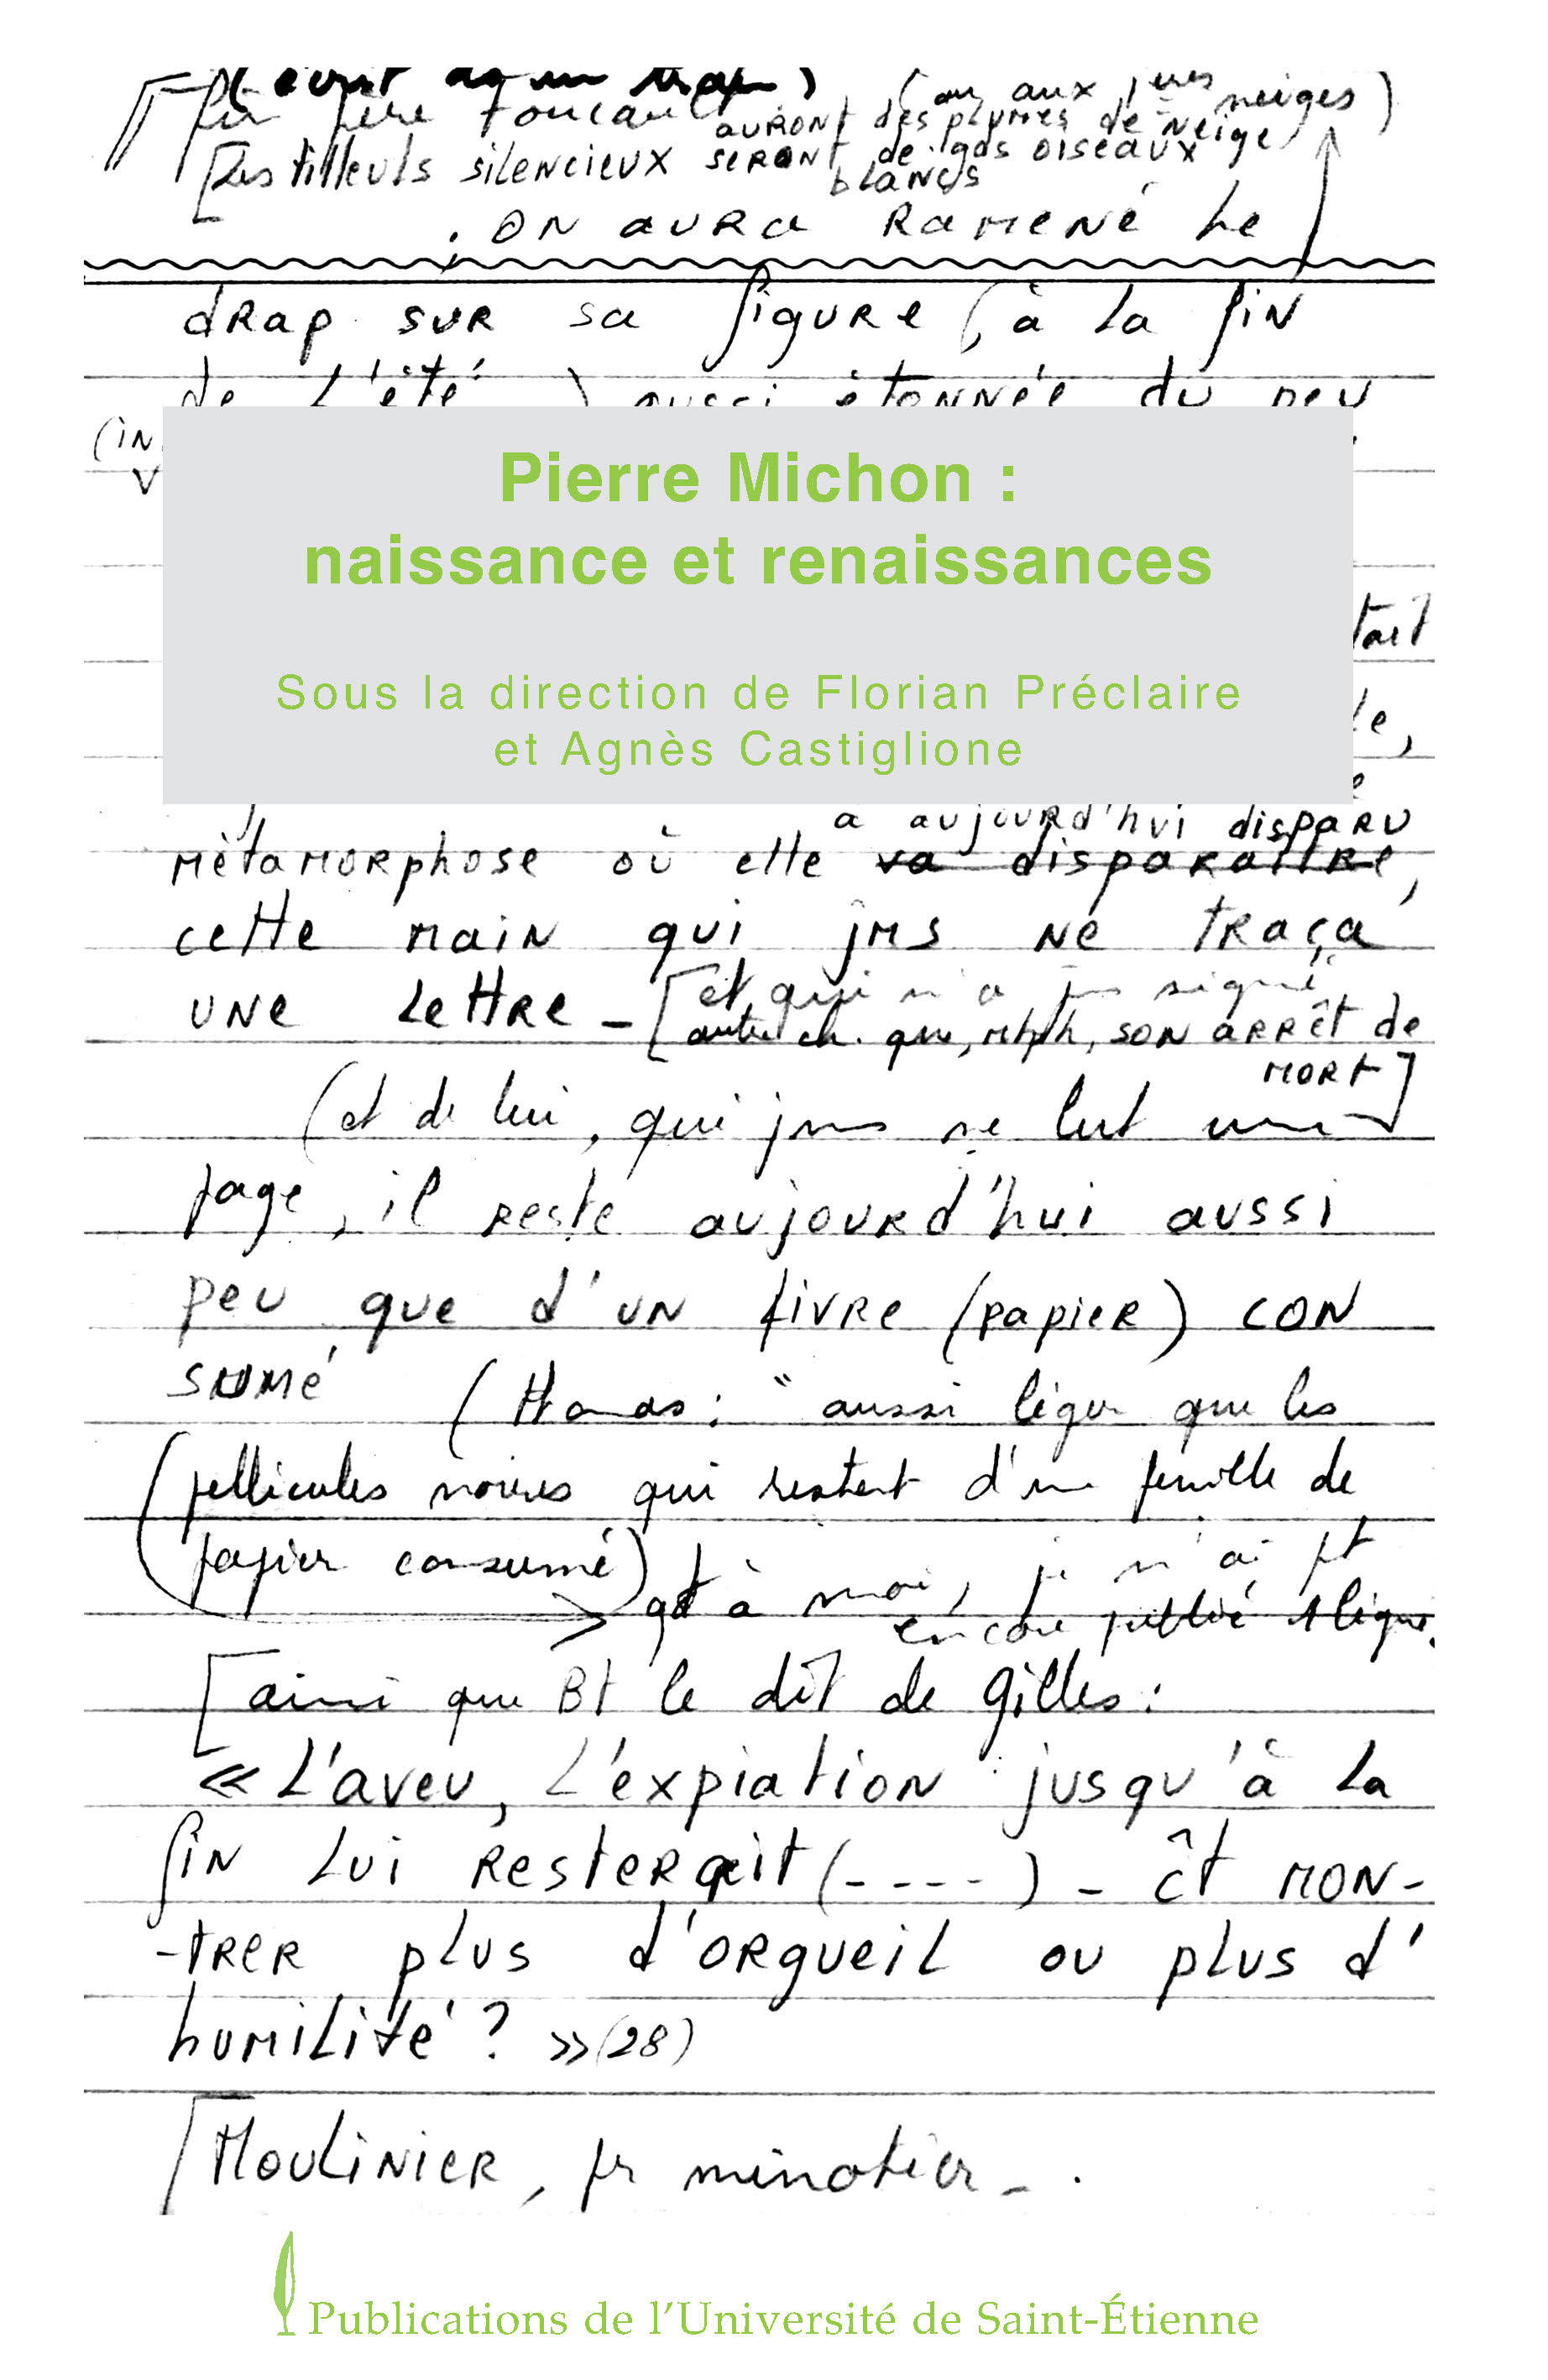 (écrit
fin père Foucault (ou aux 1ères neiges)
auront des plumes de neige
[Les tilleuls silencieux seront de gds oiseaux
blancs
. on aura Ramené Le
drap sur sa figure (, à la fin
de L'été ) aussi étonnée du peu
(in
Pierre Michon :
naissance et renaissances
tait
Sous la direction de Florian Préclaire
le,
et Agnès Castiglione
a aujourd'hui disparu
métamorphose où elle va disparaître,
cette main qui jms ne traça
une Lettre – [et qui n'a jms signé
autre ch. que, mhph, son arrêt de
mort]
(et de lui, qui jms ne lut une
page, il reste aujourd'hui aussi
peu que d'un livre (papier) con
sumé
aussi léger que les
(pellicules noires qui restent d'une feuille de
papier consumé)
qt à moi, je n'ai pt
encore publié 1 ligne.
[ainsi que Bt le dit de Gilles :
« L'aveu, L'expiation jusqu'à La
fin Lui resterait (----) – êt mon-
-trer plus d'orgueil ou plus d'
humilité ? » (28)
[Moulinier, pr minotier – .
Publications de l'Université de Saint-Étienne